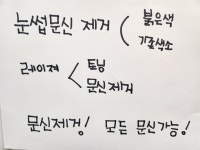 눈썹문신 제거 ( 붉은색
기존색소
레이저 < 토닝
문신제거
문신제거! 모든 문신가능!